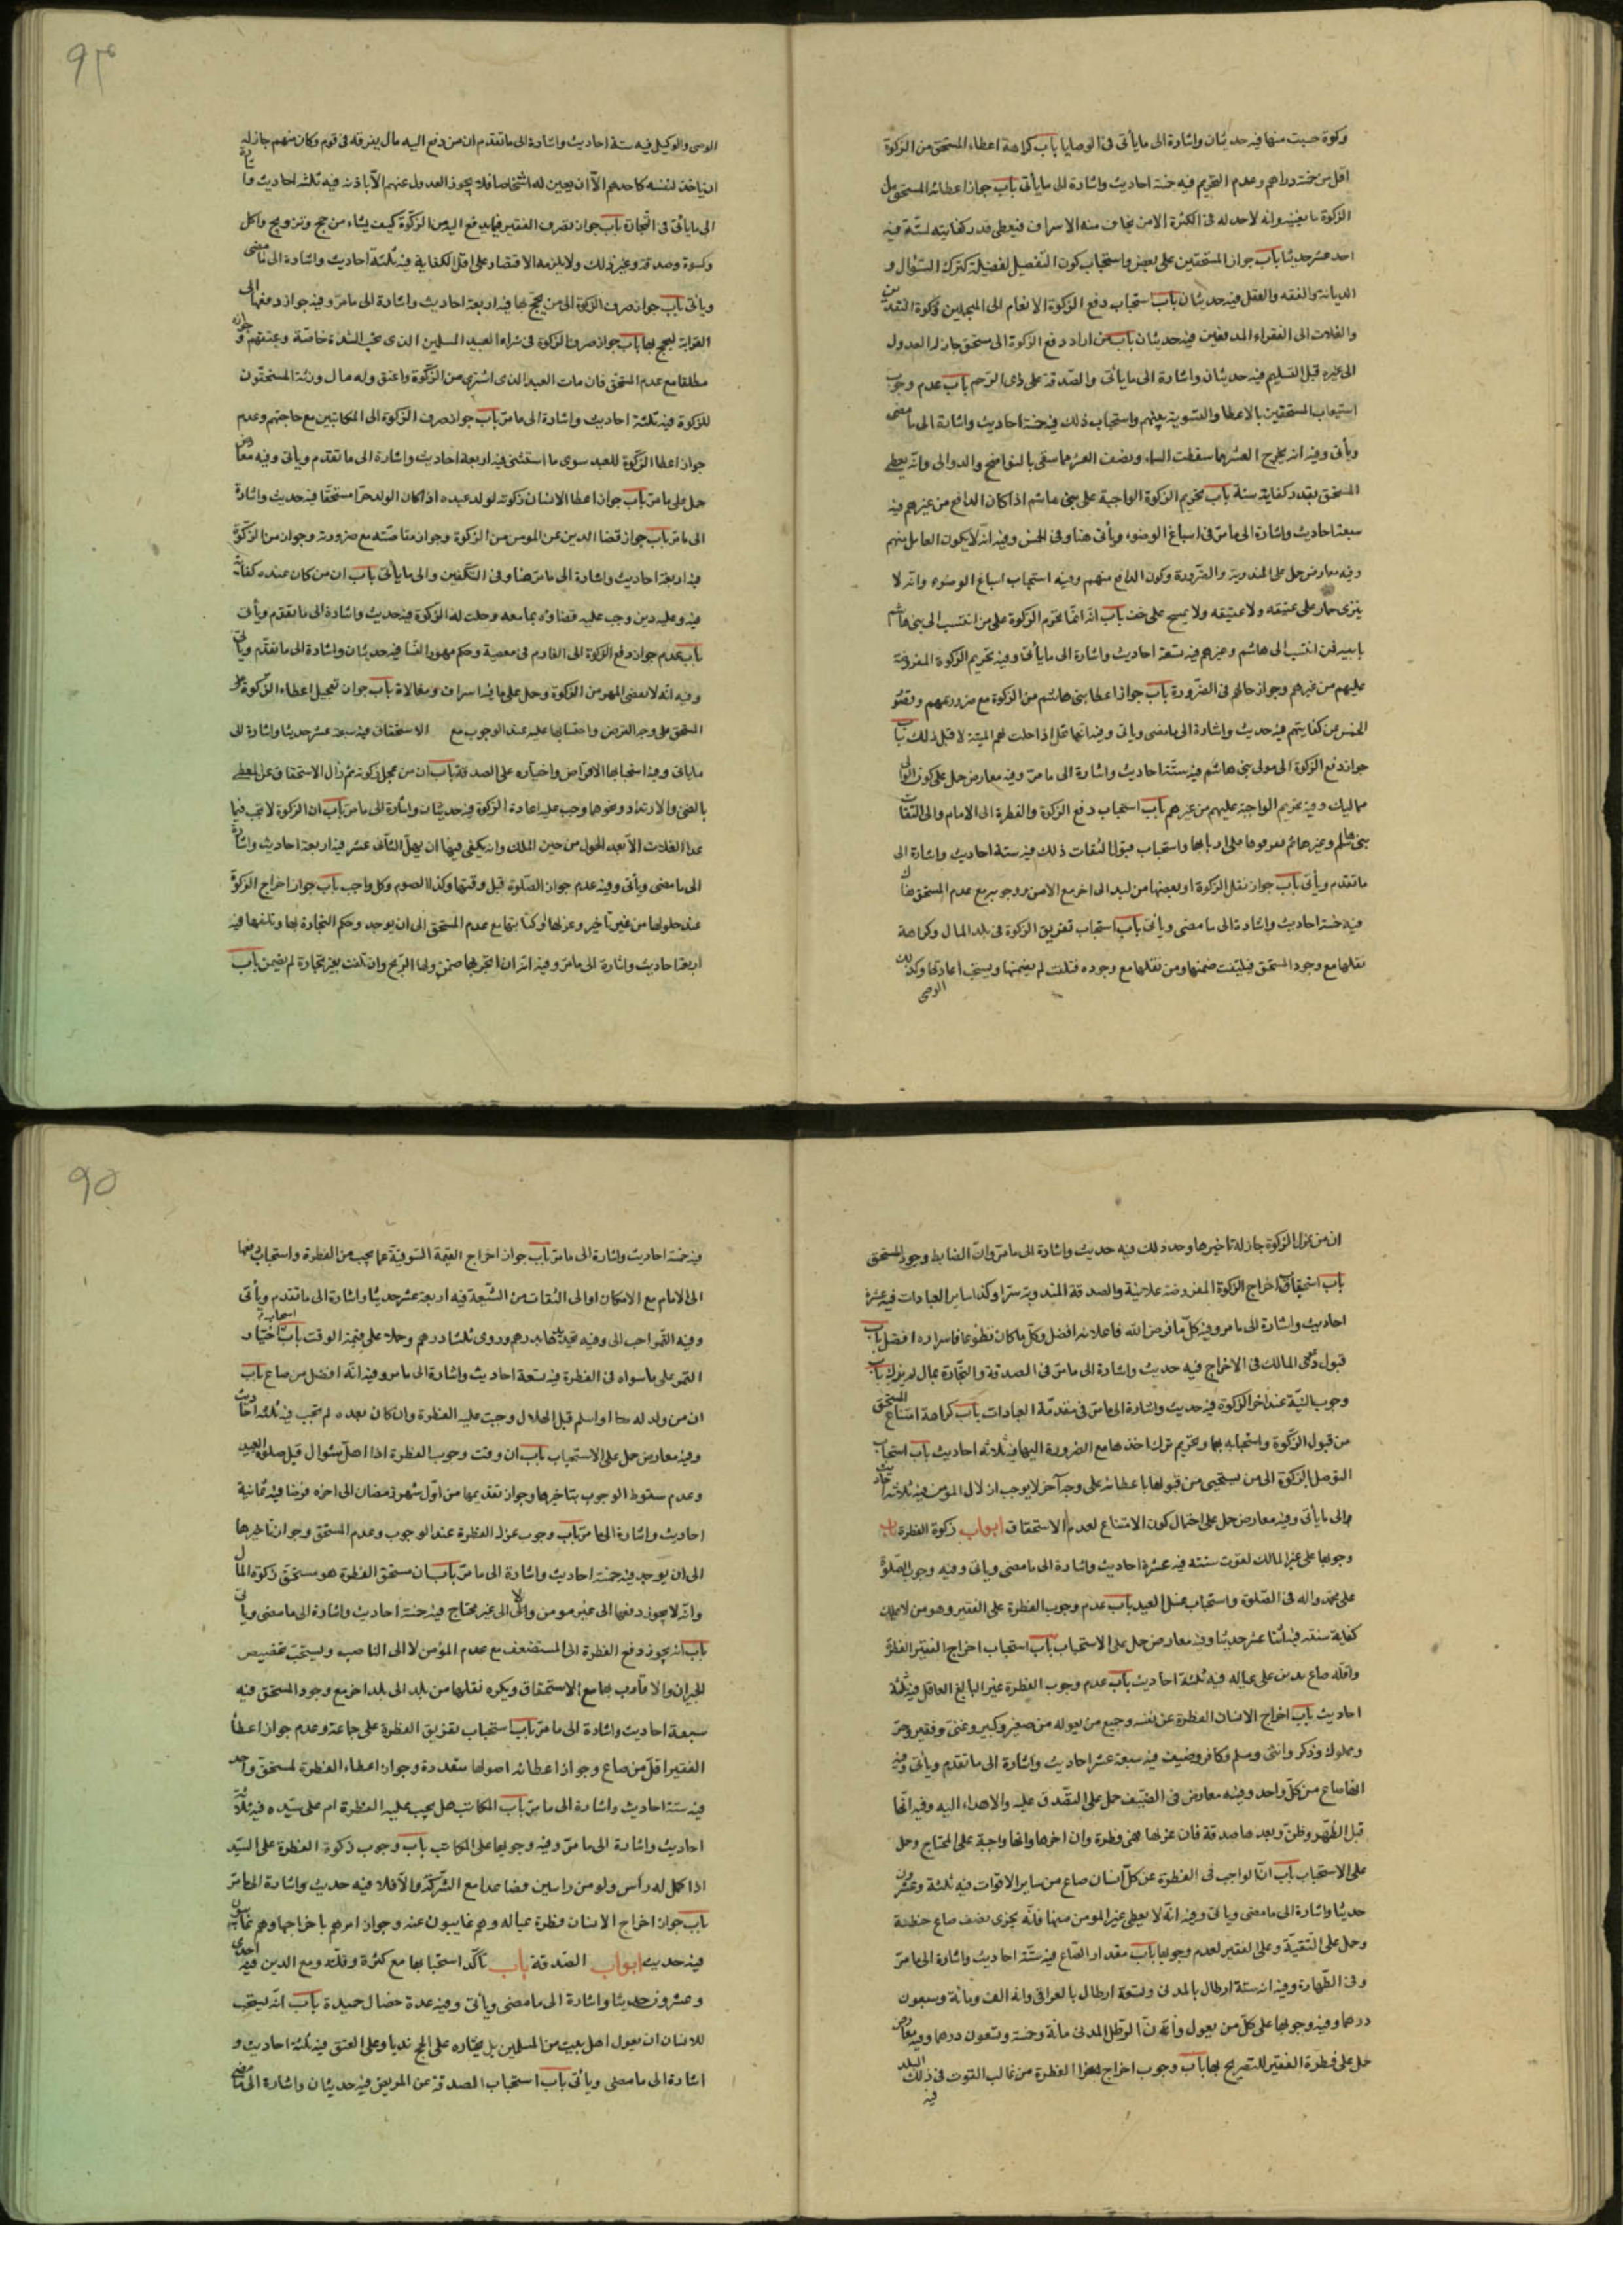 وكوة حبت منها فيه حديثان واشارة الى ما يأتى فى الوصايا باب كراهة اعطاء المستحق من الزكوة
اقل من خمسة دراهم وعدم التحريم فيه خمسة احاديث واشارة الى ما يأتى باب جواز اعطاء المستحق من
الزكوة ما يغنيه وانه لاحد له فى الكثرة الا من يخاف منه الاسراف فيعطى قدر كفايته لسنة فيه
احد عشر حديثا باب جواز المستحقين على بعض واستحباب كون التفصيل لفضيلة كترك السؤال و
الديانة والفقه والعقل فيه حديثان باب استحباب دفع الزكوة الانعام الى المتجملين وزكوة النقدين
والغلات الى الفقراء المدقعين فيه حديثان باب من اراد دفع الزكوة الى مستحق جاز له العدول
الى غيره قبل التسليم فيه حديثان واشارة الى ما يأتى والصدقة على ذى الرحم باب عدم وجوب
استيعاب المستحقين بالاعطا والتسوية بينهم واستحباب ذلك فيه خمسة احاديث واشارة الى ما مضى
ويأتى وفيه انه يخرج العشر مما سقت السماء ونصف العشر مما سقى بالنواضح والدوالى وانه يعطى
المستحق بقدر كفاية سنة باب تحريم الزكوة الواجبة على بنى هاشم اذا كان الدافع من غيرهم فيه
سبعة احاديث واشارة الى ما مر فى اسباغ الوضوء ويأتى هنا وفى الخمس وفيه انه لا يكون العامل منهم
وفيه معارض حمل على المندوبة والضرورة وكون الدافع منهم وفيه استحباب اسباغ الوضوء وانه لا
ينزى حمار على عتيقه ولا يمسح على خف باب انه انما تحرم الزكوة على من انتسب الى بنى هاشم
بابيه فمن انتسب الى هاشم وغيرهم فيه تسعة احاديث واشارة الى ما يأتى وفيه تحريم الزكوة المفروضة
عليهم من غيرهم وجواز حالهم فى الضرورة باب جواز اعطا بنى هاشم من الزكوة مع ضرورتهم وقصور
الخمس عن كفايتهم فيه حديث واشارة الى ما مضى وياتى وفيه انها تحل اذا حلت لهم الميتة لا قبل ذلك باب
جواز دفع الزكوة الى مولى بنى هاشم فيه ستة احاديث واشارة الى ما مر وفيه معارض حمل على كون الموالى
مماليك وفيه تحريم الواجبة عليهم من غيرهم باب استحباب دفع الزكوة والفطرة الى الامام والى الثقات
بنى هاشم وغيرهم لتفرقوها على اربابها واستحباب قبول الثقات ذلك فيه ستة احاديث واشارة الى
ما تقدم ويأتى باب جواز نقل الزكوة او بعضها من بلد الى اخر مع الامن ووجوبه مع عدم المستحق هناك
فيه خمسة احاديث واشارة الى ما مضى ويأتى باب استحباب تفريق الزكوة فى بلد المال وكراهة
نقلها مع وجود المستحق فيه ضمنها ومن نقلها مع وجوده فتلفت لم يضمنها ويستحب اعادتها وكذلك
الوصى
الوصى والوكيل فيه ستة احاديث واشارة الى ما تقدم ان من دفع اليه مال يفرقه فى قوم وكان منهم جاز له
ان ياخذ لنفسه كاحدهم الا ان يعين له اشخاصا فلا يجوز العدول عنهم الا باذنه فيه ثلثة احاديث واشارة
الى ما يأتى فى التجارة باب جواز تصرف الفقير فيما يدفع اليه من الزكوة كيف يشاء من حج وتزويج واكل
وكسوة وصدقة وغير ذلك ولا يلزمه الاقتصار على اقل الكفاية فيه ثلثة احاديث واشارة الى ما مضى
ويأتى باب جواز صرف الزكوة الى من يحج بها فيه اربعة احاديث واشارة الى ما مر وفيه جواز دفعها الى
القرابة ليحج بها باب جواز صرف الزكوة فى شراء العبيد المسلمين الذى تحت الشدة خاصة وعتقهم وجوازه
مطلقا مع عدم المستحق فان مات العبد الذى اشترى من الزكوة واعتق وله مال ورثته المستحقون
للزكوة فيه ثلثة احاديث واشارة الى ما مر باب جواز صرف الزكوة الى المكاتبين مع حاجتهم وعدم
جواز اعطا الزكوة للعبد سوى ما استثنى فيه اربعة احاديث واشارة الى ما تقدم ويأتى وفيه معارض
حمل على ما مر باب جواز اعطا الانسان زكوته لولد عبده اذا كان الولد حرا مستحقا فيه حديث واشارة
الى ما مر باب جواز قضا الدين عن المومن من الزكوة وجواز مقاصته مع ضرورته وجواز من الزكوة
فيه اربعة احاديث واشارة الى ما مر هنا وفى التكفين والى ما يأتى باب ان من كان عنده كفاية
فيه وعليه دين وجب عليه قضاوه بما معه وحلت له الزكوة فيه حديث واشارة الى ما تقدم ويأتى
باب عدم جواز دفع الزكوة الى الغارم فى معصية وحكم مهور النسا فيه حديثان واشارة الى ما تقدم ويأتى
وفيه انه لا يقضى المهر من الزكوة وحمل على ما فيه اسراف ومغالاة باب جواز تعجيل اعطاء الزكوة على
المستحق على وجه القرض واحتسابها عليه عند الوجوب مع الاستحقاق فيه سبعة عشر حديثا واشارة الى
ما ياتى وفيه استحباب الاقراض واختياره على الصدقة باب ان من عجل زكوته ثم زال الاستحقاق عن المعطى
بالغنى والارتداد ونحوها وجب عليه اعادة الزكوة فيه حديثان واشارة الى ما مر باب ان الزكوة لا تجب فيما
عدا الغلات الا بعد الحول من حين الملك وانه يكفى فيها ان يهل الثانى عشر فيه اربعة احاديث واشارة
الى ما مضى ويأتى وفيه عدم جواز الصلوة قبل وقتها وكذا الصوم وكل واجب باب جواز اخراج الزكوة
عند حلولها من غير تأخير وعزلها وكتابتها مع عدم المستحق الى ان يوجد وحكم التجارة بها وتلفها فيه
اربعة احاديث واشارة الى ما مر وفيه انه ان اتجر بها ضمن ولها الربح وان تلفت بغير تجارة لم يضمن باب
ان من عزل الزكوة جاز له تأخيرها وحد ذلك فيه حديث واشارة الى ما مر وان الضابط وجود المستحق
باب استحباب اخراج الزكوة المفروضة علانية والصدقة المندوبة سرا وكذا ساير العبادات فيه عشرة
احاديث واشارة الى ما مر وفيه كل ما فرض الله فاعلانه افضل وكل ما كان تطوعا فاسراره افضل باب
قبول دعوى المالك فى الاخراج فيه حديث واشارة الى ما مر فى الصدقة والتجارة بمال لم يزك باب
وجوب النية عند اخراج الزكوة فيه حديث واشارة الى ما مر فى مقدمة العبادات باب كراهة امتناع المستحق
من قبول الزكوة واستحبابه بها وتحريم ترك اخذها مع الضرورة اليها فيه ثلاثة احاديث باب استحباب
التوصل بالزكوة الى من يستحيى من قبولها باعطائه على وجه آخر لا يوجب اذلال المؤمن فيه ثلاثة احاديث
والى ما يأتى وفيه معارض حمل على احتمال كون الامتناع لعدم الاستحقاق ابواب زكوة الفطرة باب
وجوبها على غير المالك لقوت سنته فيه عشرة احاديث واشارة الى ما مضى وياتى وفيه وجوب الصلوة
على محمد واله فى الصلوة واستحباب غسل العيد باب عدم وجوب الفطرة على الفقير وهو من لا يملك
كفاية سنته فيه اثنا عشر حديثا وفيه معارض حمل على الاستحباب باب استحباب اخراج الفقير الفطرة
واقله صاع يديره على عياله فيه ثلثة احاديث باب عدم وجوب الفطرة غير البالغ العاقل فيه ثلثة
احاديث باب اخراج الانسان الفطرة عن نفسه وجميع من يعوله من صغير وكبير وغنى وفقير وحر
ومملوك وذكر وانثى ومسلم وكافر وضيف فيه سبعة عشر احاديث واشارة الى ما تقدم ويأتى وفيه
انها صاع من كل واحد وفيه معارض فى الضيف حمل على التصدق عليه والاهداء اليه وفيه انها
قبل الظهر وظن وبعدها صدقة فان عزلها فهى فطرة وان اخرها وانها واجبة على المحتاج وحمل
على الاستحباب باب ان الواجب فى الفطرة عن كل انسان صاع من ساير الاقوات فيه ثلثة وعشرون
حديثا واشارة الى ما مضى وياتى وفيه انه لا يعطى غير المومن منها فانه يجزى نصف صاع حنطة
وحمل على التقية وعلى الفقير لعدم وجوبها باب مقدار الصاع فيه ستة احاديث واشارة الى ما مر
وفى الطهارة وفيه انه ستة ارطال بالمدنى وتسعة ارطال بالعراقى وانه الف ومائة وسبعون
درهما وفيه وجوبها على كل من يعول وان الرطل المدنى مائة وخمسة وتسعون درهما وفيه معارض
حمل على فطرة الفقير للتصريح بها باب وجوب اخراج الفطرة من غالب القوت فى ذلك البلد
فيه
فيه خمسة احاديث واشارة الى ما مر باب جواز اخراج القيمة السوقية عما يجب من الفطرة واستحباب دفعها
الى الامام مع الامكان او الى الثقات من الشيعة فيه اربعة عشر حديثا واشارة الى ما تقدم ويأتى
وفيه التمر احب الى وفيه تحديدها بدرهم وروى ثلثا درهم وحملا على قيمة الوقت باب استحباب اختيار
التمر على ما سواه فى الفطرة فيه تسعة احاديث واشارة الى ما مر وفيه انه افضل من صاع باب
ان من ولد له او اسلم قبل الهلال وجبت عليه الفطرة وان كان بعده لم تجب فيه ثلثة احاديث
وفيه معارض حمل على الاستحباب باب ان وقت وجوب الفطرة اذا اهل شوال قبل صلوة العيد
وعدم سقوط الوجوب بتاخيرها وجواز تقديمها من اول شهر رمضان الى اخره فرضا فيه ثمانية
احاديث واشارة الى ما مر باب وجوب عزل الفطرة عند الوجوب وعدم المستحق وجواز تأخيرها
الى ان يوجد فيه خمسة احاديث واشارة الى ما مر باب ان مستحق الفطرة هو مستحق زكوة المال
وانه لا يجوز دفعها الى غير مومن ولا الى غير محتاج فيه خمسة احاديث واشارة الى ما مضى ويأتى
باب انه يجوز دفع الفطرة الى المستضعف مع عدم المؤمن لا الى الناصب ويستحب تخصيص
الجيران والاقارب بها مع الاستحقاق ويكره نقلها من بلد الى بلد اخر مع وجود المستحق فيه
سبعة احاديث واشارة الى ما مر باب استحباب تفريق الفطرة على جماعة وعدم جواز اعطا
الفقير اقل من صاع وجواز اعطائه اصواعا متعددة وجواز اعطاء الفطرة لمستحق واحد
فيه ستة احاديث واشارة الى ما مر باب المكاتب هل يجب عليه الفطرة ام على سيده فيه ثلاثة
احاديث واشارة الى ما مر وفيه وجوبها على المكاتب باب وجوب زكوة الفطرة على السيد
اذا كمل له رأس ولو من راسين فصاعدا مع الشركة والا فلا فيه حديث واشارة الى ما مر
باب جواز اخراج الانسان فطرة عياله وهم غايبون عنه وجواز امرهم باخراجها وهم غايبون
فيه حديث ابواب الصدقة باب تأكد استحبابها مع كثرة وقلته ومع الدين فيه احدى
وعشرون حديثا واشارة الى ما مضى ويأتى وفيه عدة خصال حميدة باب انه يستحب
للانسان ان يعول اهل بيت من المسلمين بل يختاره على الحج ندبا وعلى العتق فيه ثلثة احاديث و
اشارة الى ما مضى ويأتى باب استحباب الصدقة عن المريض فيه حديثان واشارة الى ما مضى